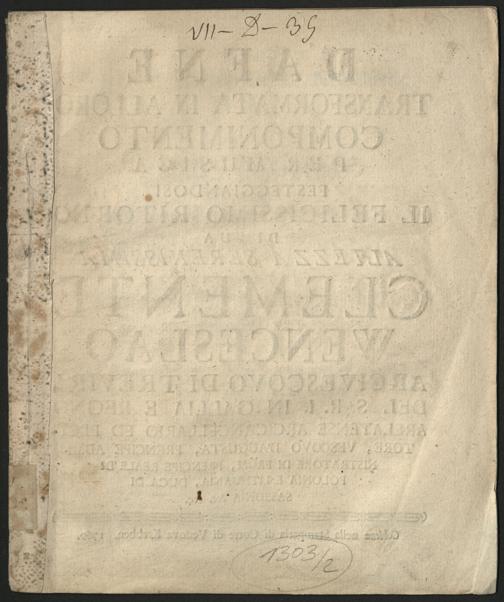 VII-D-39
DAFNE
TRANSFORMATA IN ALLORO
COMPONIMENTO
PER MUSICA
FESTEGGIANDOSI
IL FELICISSIMO RITORNO
DI SUA
ALTEZZA SERENISSIMA
CLEMENTE
WENCESLAO
ARCIVESCOVO DI TREVIRI
DEL S.R.I. IN GALLIA E REGNO
ARELATENSE ARCICANCELLARIO ED
TORE, VESCOVO D'AUGUSTA, PRENCIPE
DI PRENCIPE REALE DI
POLONIA E LITUANIA, DUCA DI
SASSONIA
nella Stamperia di Corte di Vedova Krabben,
1303/2